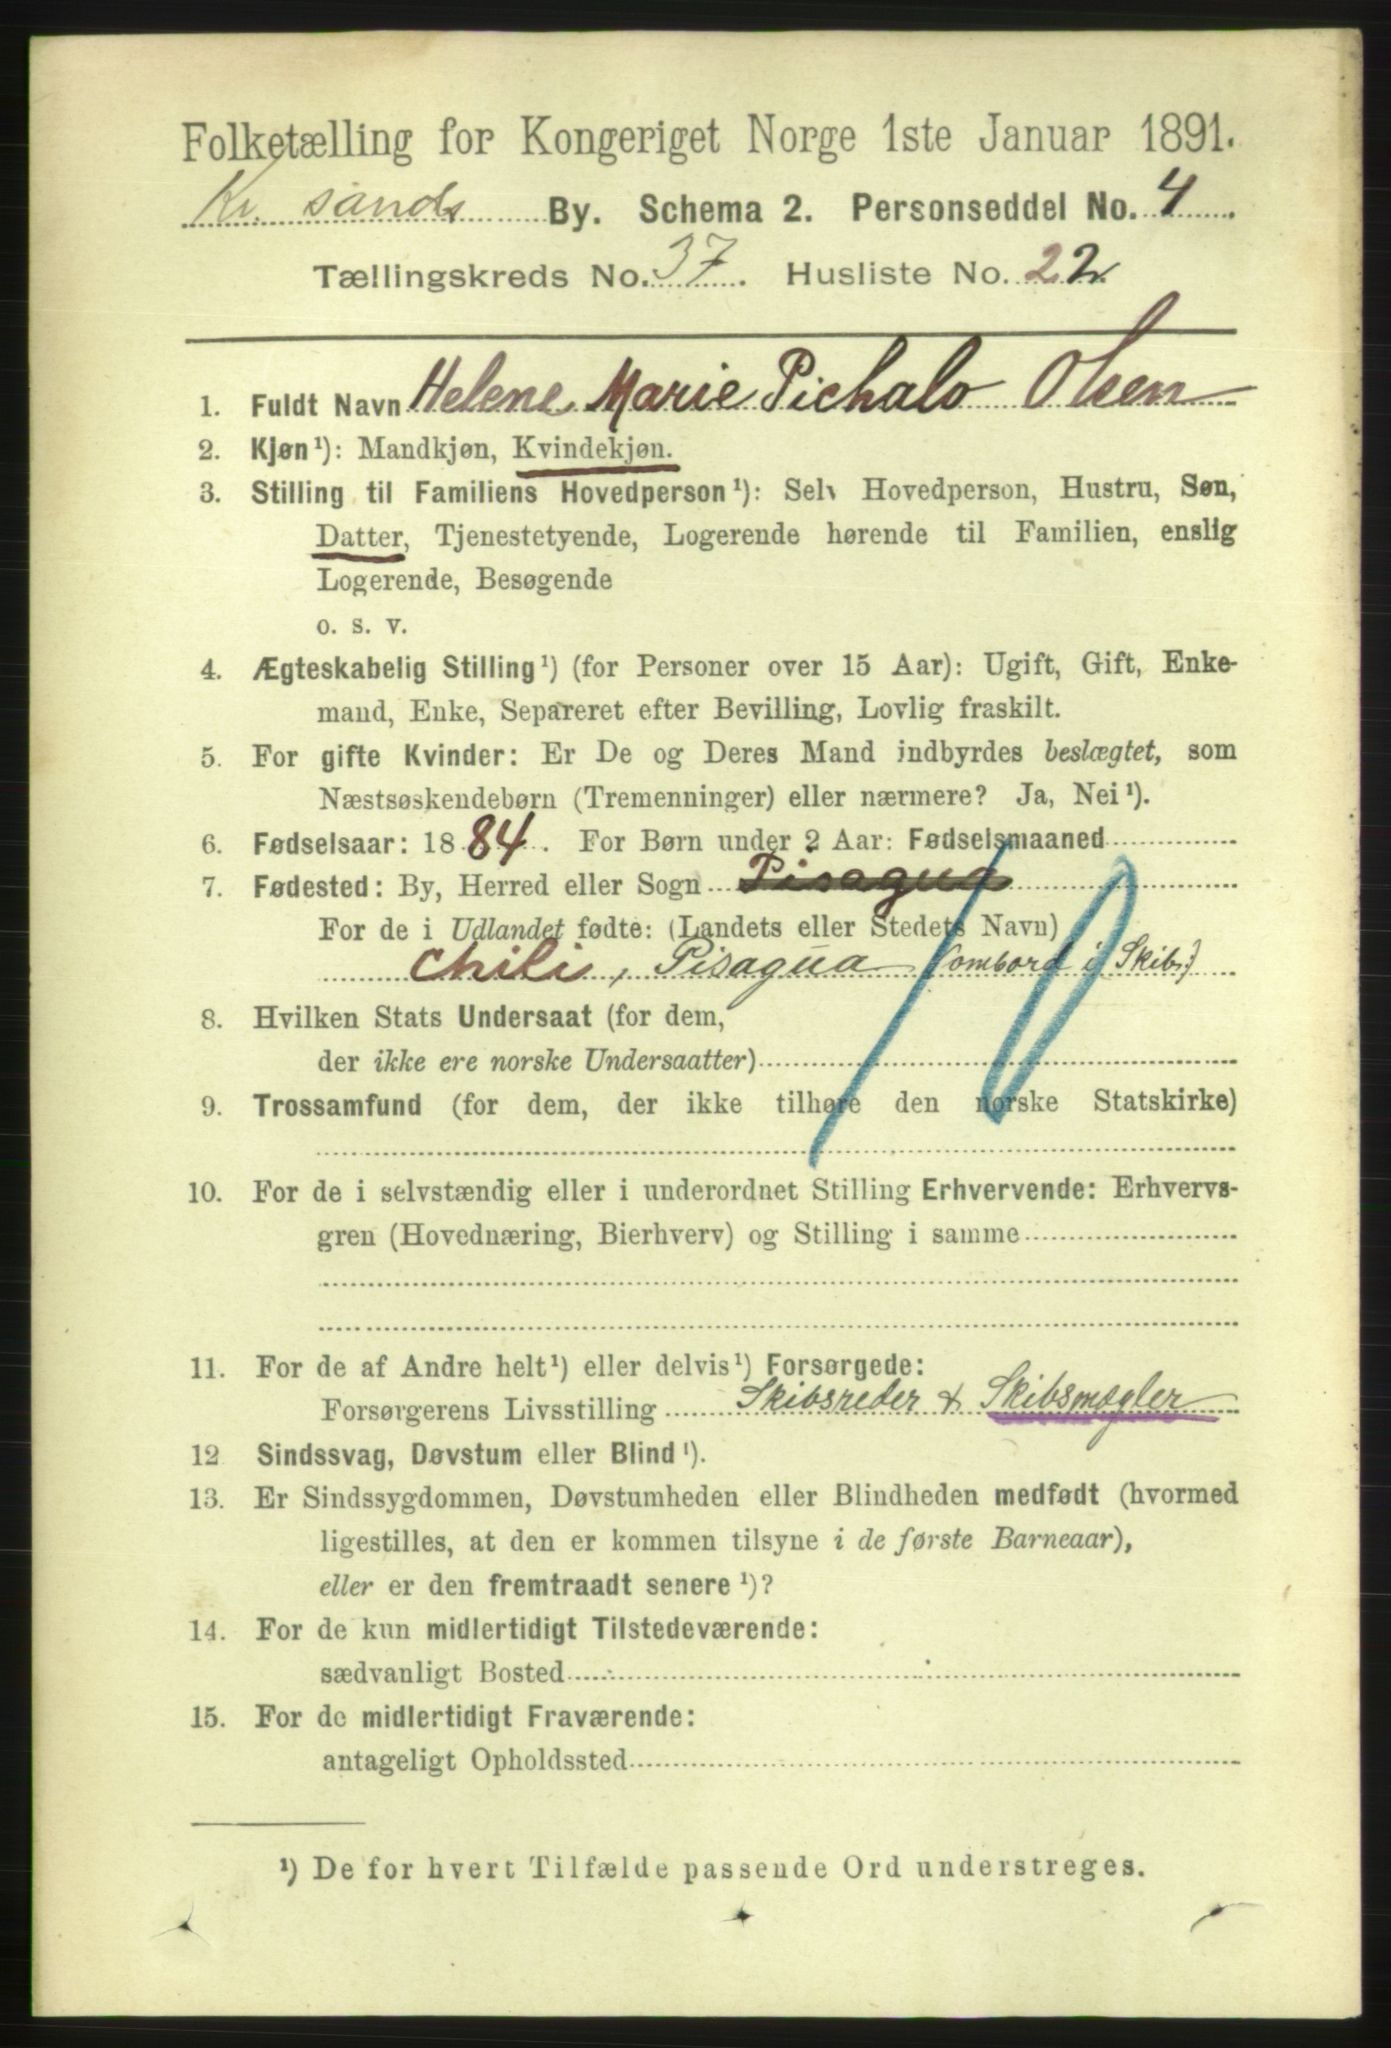 Folketælling for Kongeriget Norge 1ste Januar 1891.
Kr. sands By. Schema 2. Personseddel No. 4
Tællingskreds No. 37. Husliste No. 22
1. Fuldt Navn Helene Marie Pichalo Olsen
2. Kjøn¹): Mandkjøn, Kvindekjøn.
3. Stilling til Familiens Hovedperson¹): Selv Hovedperson, Hustru, Søn,
Datter, Tjenestetyende, Logerende hørende til Familien, enslig
Logerende, Besøgende
o. s. v.
4. Ægteskabelig Stilling¹) (for Personer over 15 Aar): Ugift, Gift, Enke-
mand, Enke, Separeret efter Bevilling, Lovlig fraskilt.
5. For gifte Kvinder: Er De og Deres Mand indbyrdes beslægtet, som
Næstsøskendebørn (Tremenninger) eller nærmere? Ja, Nei¹).
6. Fødselsaar: 1884. For Børn under 2 Aar: Fødselsmaaned
7. Fødested: By, Herred eller Sogn Pisagua
For de i Udlandet fødte: (Landets eller Stedets Navn)
Chili, Pisagua (ombord i Skib.)
10
8. Hvilken Stats Undersaat (for dem,
der ikke ere norske Undersaatter)
9. Trossamfund (for dem, der ikke tilhøre den norske Statskirke)
10. For de i selvstændig eller i underordnet Stilling Erhvervende: Erhvervs-
gren (Hovednæring, Bierhverv) og Stilling i samme
11. For de af Andre helt¹) eller delvis¹) Forsørgede:
Forsørgerens Livsstilling Skibsreder & Skibsmægler
12 Sindssvag, Døvstum eller Blind¹).
13. Er Sindssygdommen, Døvstumheden eller Blindheden medfødt (hvormed
ligestilles, at den er kommen tilsyne i de første Barneaar),
eller er den fremtraadt senere¹)?
14. For de kun midlertidigt Tilstedeværende:
sædvanligt Bosted
15. For de midlertidigt Fraværende:
antageligt Opholdssted
¹) De for hvert Tilfælde passende Ord understreges.